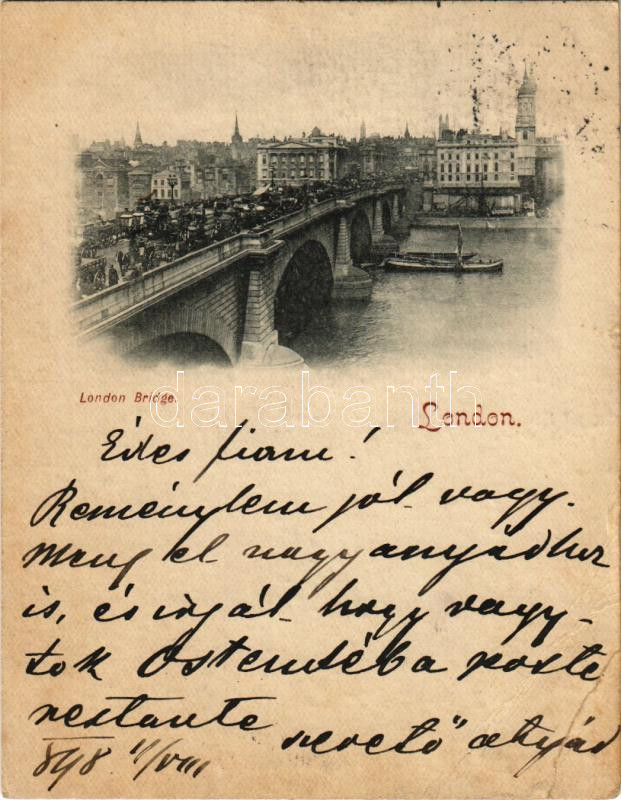 London Bridge.
London.
darabanth
Édes fiam!
Reménylem jól vagy.
Menj el nagyanyádhoz
is, és írjál hogy vagy-
tok Ostendéba poste
restante szerető atyád
898 11/VIII